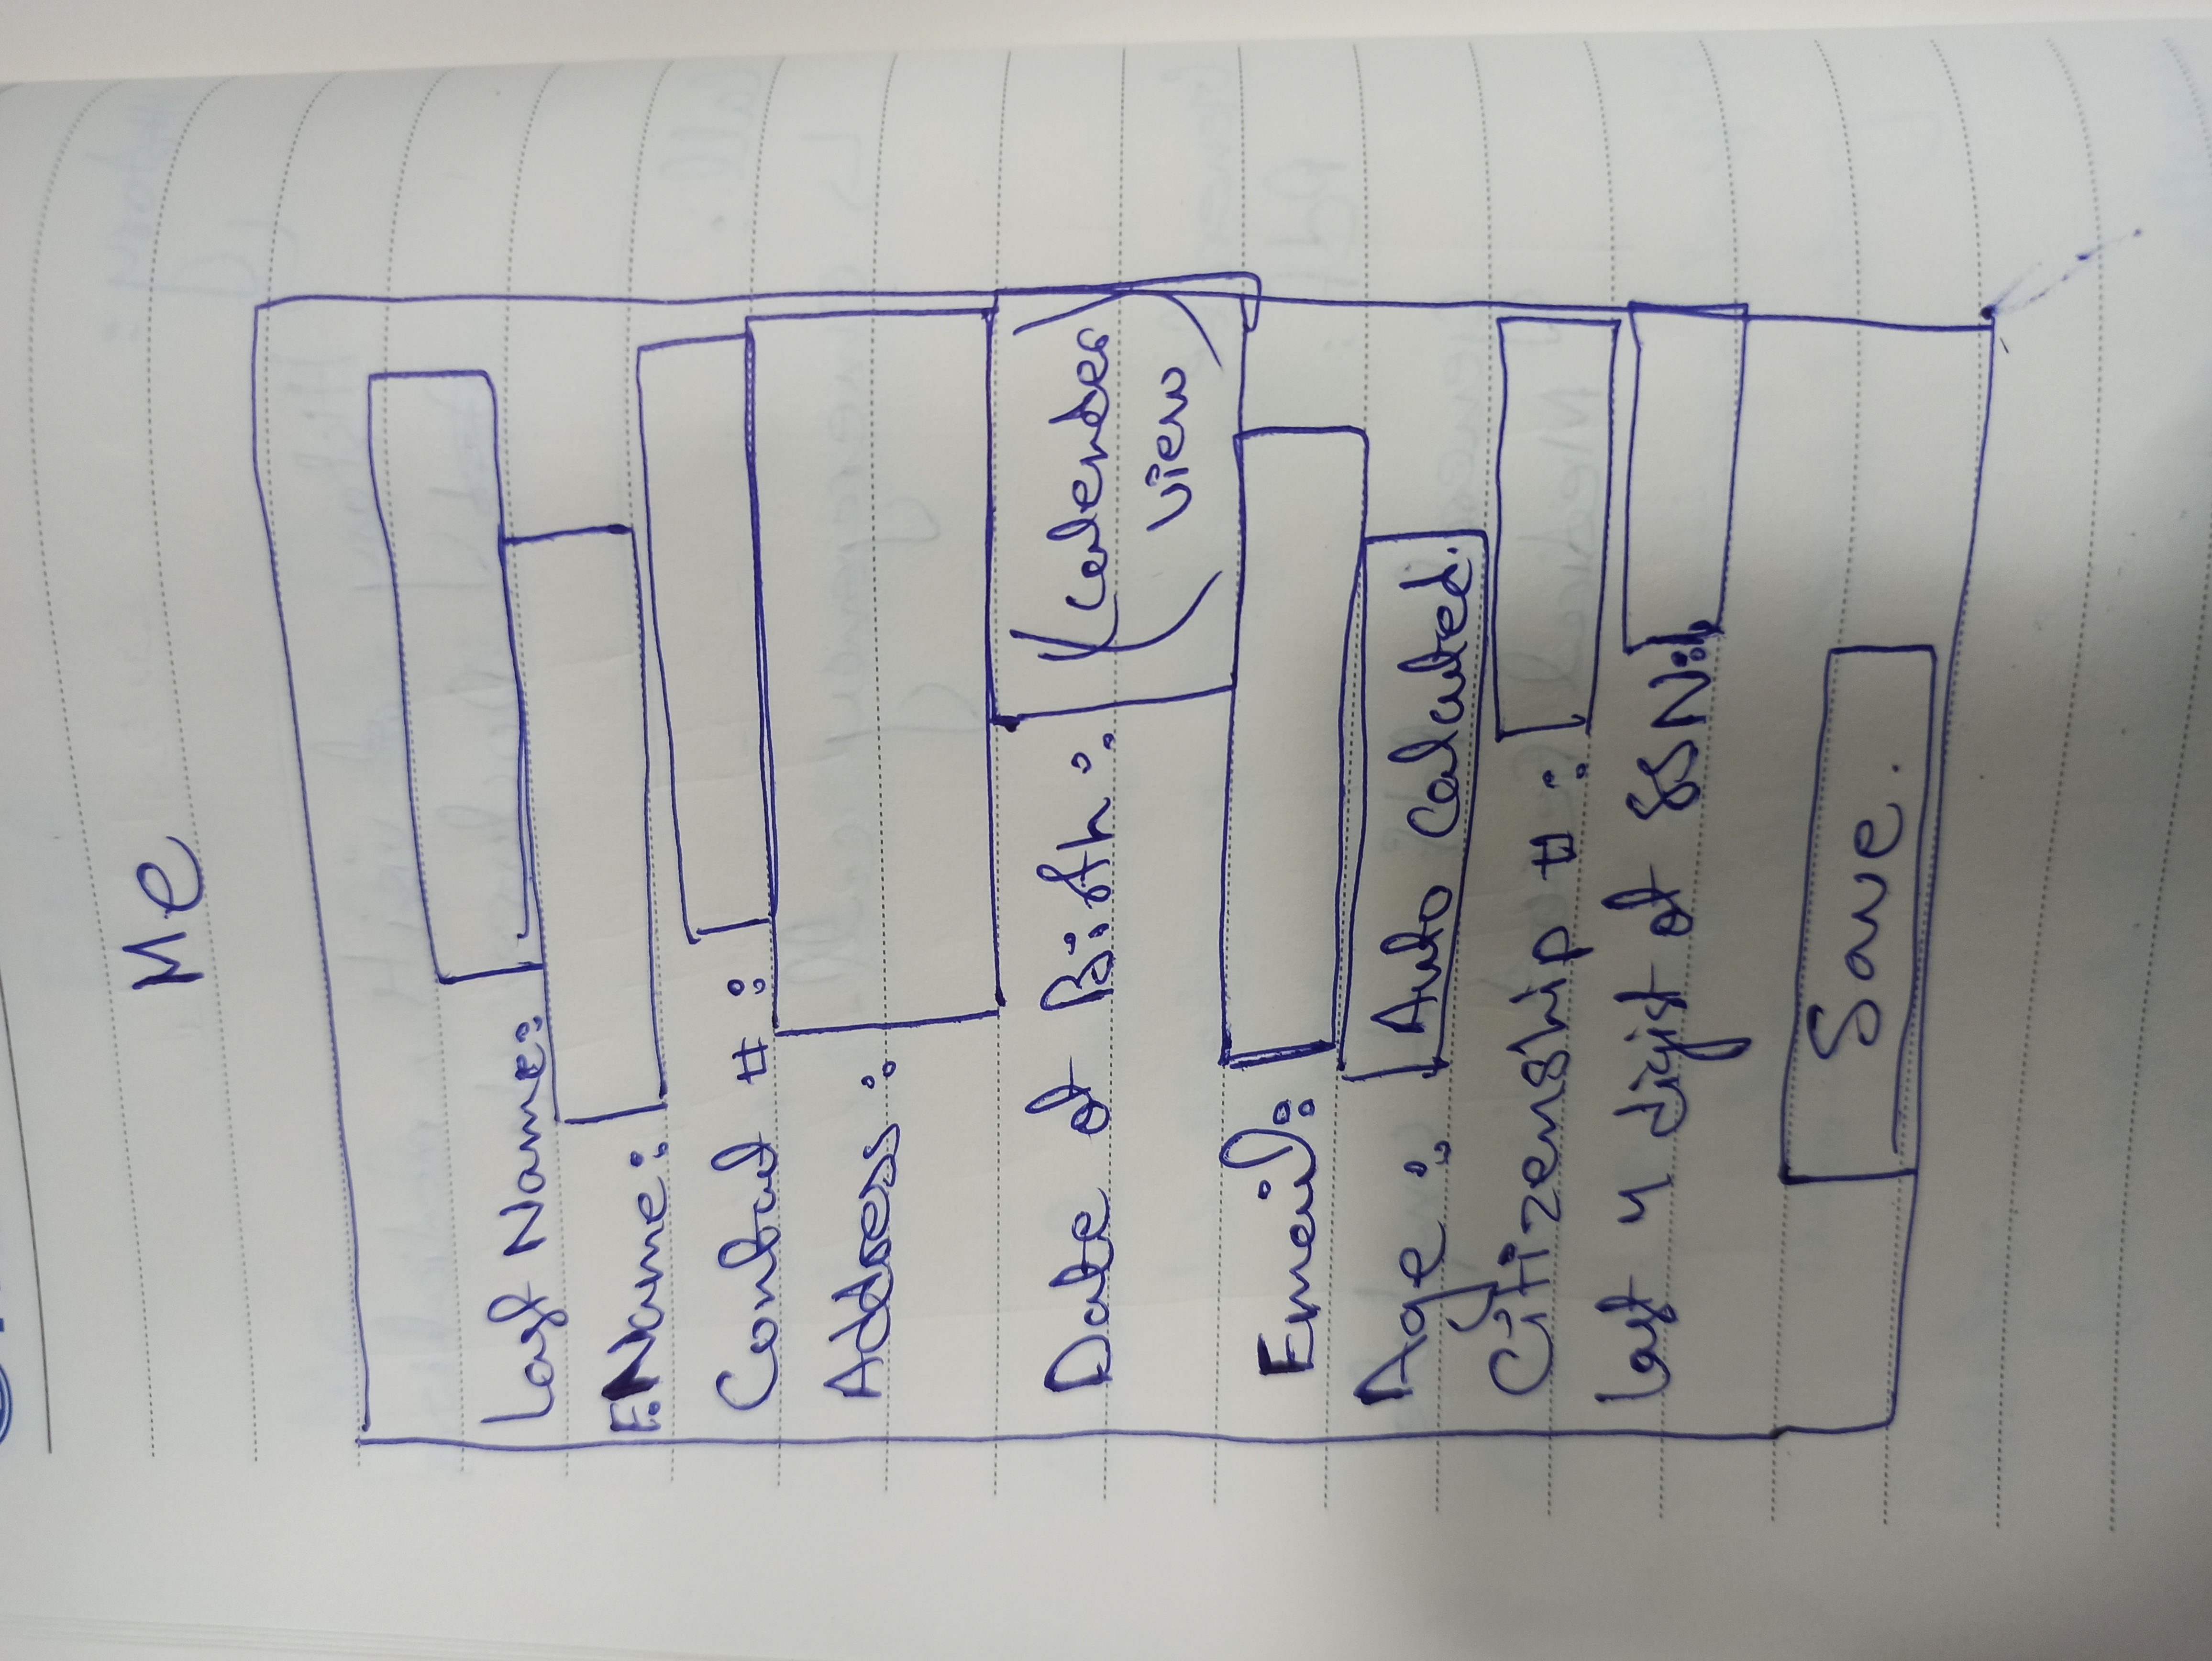 Me
Last Name:
F.Name:
Contact # :
Address :
Date of Birth : (Calender
view)
Email:
Age : Auto Calcuted.
Citizenship # :
last 4 digist of SSN:
Save.